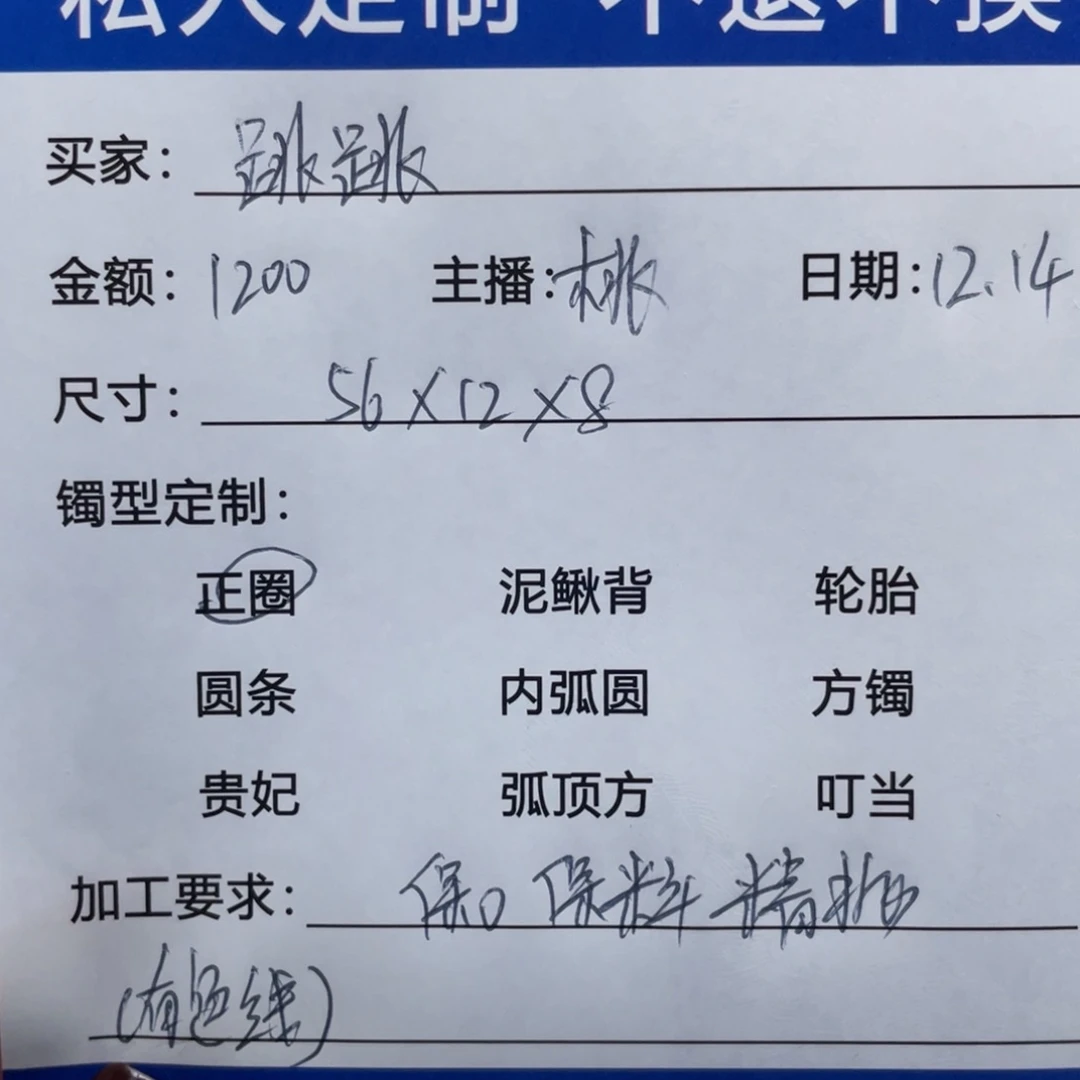 私人定制 不退不换
买家：跳跳
金额：1200 主播：桃 日期：12.14
尺寸：56×12×8
镯型定制：
正圈 泥鳅背 轮胎
圆条 内弧圆 方镯
贵妃 弧顶方 叮当
加工要求：保口 保料 精抛
（有色线）